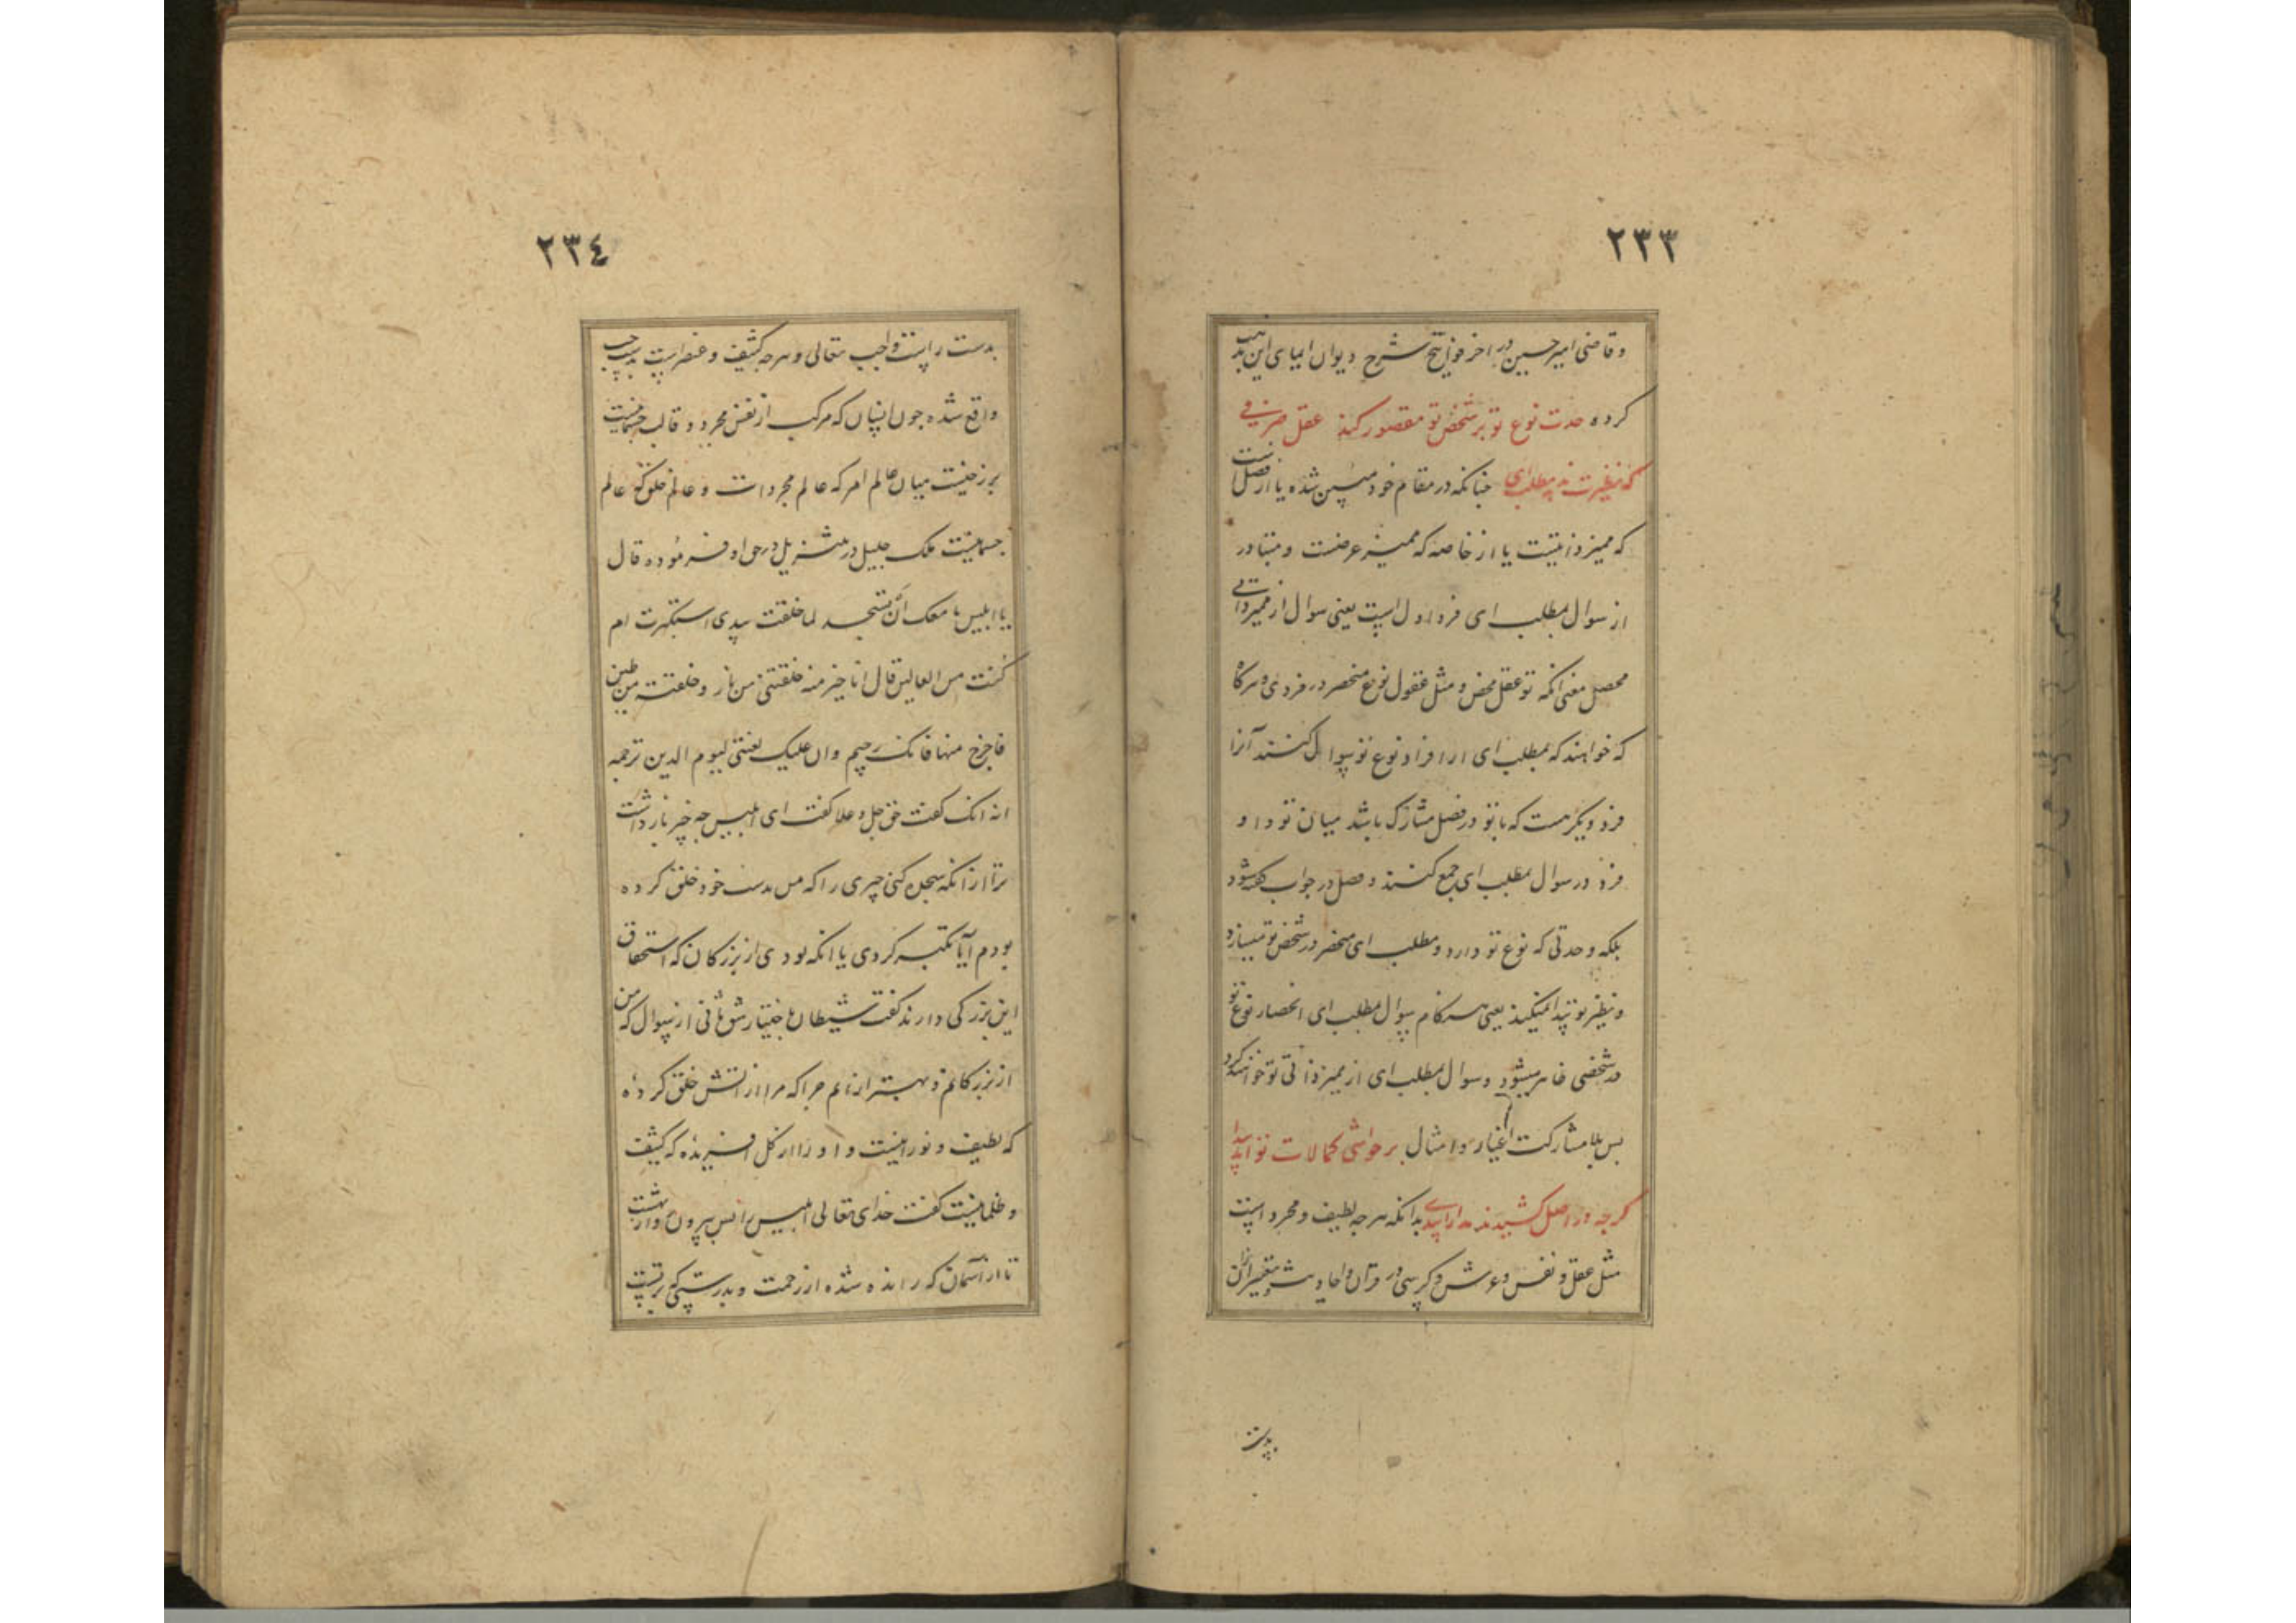 ٢٣٣
و قاضی امیر حسین در آخر فواتح شرح دیوان ایمای این مذهب
کرده حدت نوع تو بر شخص تو مقصور کند عقل صرفی
که نظیرت نه بمطلب ای چنانکه در مقام خود مبین شده یا از فصل است
که ممیز ذاتیت یا از خاصه که ممیز عرضیت و متبادر
از سوال بمطلب ای فرد اول است یعنی سوال از ممیز ذاتی
محصل معنی انکه تو عقل محض و مثل عقول نوع منحصر در فردی و هرگاه
که خواهند که بمطلب ای از افراد نوع تو سوال کنند آنرا
فرد دیگر نیست که با تو در فصل مشارک باشد میان تو و او
فرد در سوال بمطلب ای جمع کنند و فصل در جواب گفته شود
بلکه وحدتی که نوع تو دارد و مطلب ای منحصر در شخص تو میسازد
و نظیر تو پیدا نمیکند یعنی هنگام سوال بمطلب ای انحصار نوع تو
در شخصی ظاهر میشود و سوال بمطلب ای از ممیز ذاتی تو خواهند کرد
بس بلا مشارکت اغیار و امثال بر حواشی کمالات تو آید پیدا
گرچه در اصل کشیدند مدارای بدانکه هر چه لطیف و مجرد است
مثل عقل و نفس و عرش و کرسی در قرآن و احادیث تعبیر از آن
بدست
٢٣٤
بدست راست واجب تعالی و هرچه کثیف و عنصریست بدست چپ
واقع شده جون انسان که مرکب از نفس مجرد و قالب جسمانیست
برزخیست میان عالم امر که عالم مجردات و عالم خلق که عالم
جسمانیست ملک جلیل در تنزیل در حق او فرموده قال
یا ابلیس ما منعک أن تسجد لما خلقت بیدی استکبرت ام
کنت من العالین قال انا خیر منه خلقتنی من نار و خلقته من طین
فاخرج منها فانک رجیم و ان علیک لعنتی لیوم الدین ترجمه
انه انک گفت حق جل و علا گفت ای ابلیس چه چیز باز داشت
ترا از انکه سجده کنی چیزی را که من بدست خود خلق کرده
بودم آیا تکبر کردی یا انکه بودی از بزرگان که استحقاق
این بزرگی دارند گفت شیطان باختیار شق ثانی از سوال که من
از بزرگانم و بهتر از انم چرا که مرا از اتش خلق کرده
که لطیف و نورانیست و او را از گل افریده که کثیف
و ظلمانیست گفت خدای تعالی ابلیس را بس بیرون رو از بهشت
تا از آسمان که رانده شده از رحمت و بدرستیکه بر تست